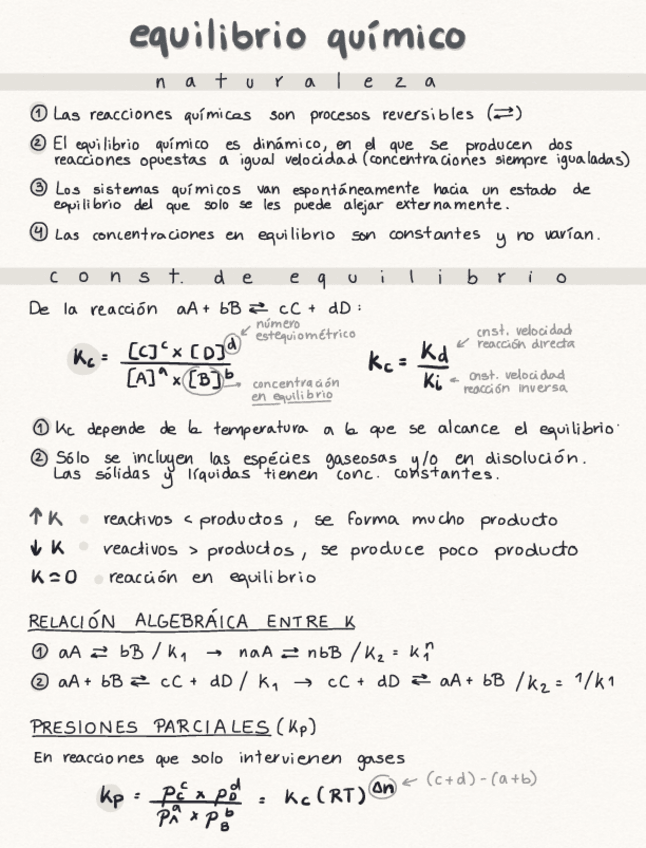 equilibrio químico
naturaleza
① Las reacciones químicas son procesos reversibles (⇄)
② El equilibrio químico es dinámico, en el que se producen dos
reacciones opuestas a igual velocidad (concentraciones siempre igualadas)
③ Los sistemas químicos van espontáneamente hacia un estado de
equilibrio del que solo se les puede alejar externamente.
④ Las concentraciones en equilibrio son constantes y no varían.
const. de equilibrio
De la reacción aA + bB ⇄ cC + dD :
Kc = [C]^c x [D]^d / [A]^a x [B]^b
número
estequiométrico
concentración
en equilibrio
Kc = Kd / Ki
cnst. velocidad
reacción directa
cnst. velocidad
reacción inversa
① Kc depende de la temperatura a la que se alcance el equilibrio.
② Sólo se incluyen las espécies gaseosas y/o en disolución.
Las sólidas y líquidas tienen conc. constantes.
↑ K • reactivos < productos, se forma mucho producto
↓ K • reactivos > productos, se produce poco producto
K = 0 • reacción en equilibrio
RELACIÓN ALGEBRÁICA ENTRE K
① aA ⇄ bB / K₁ → naA ⇄ nbB / K₂ = K₁ⁿ
② aA + bB ⇄ cC + dD / K₁ → cC + dD ⇄ aA + bB / K₂ = 1/K1
PRESIONES PARCIALES (Kp)
En reacciones que solo intervienen gases
Kp = P_C^c x P_D^d / P_A^a x P_B^b = Kc (RT)^Δn ← (c+d) - (a+b)